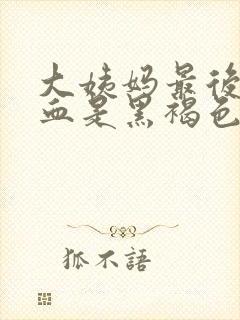 大姨妈最後
血是黑褐色
狐不語